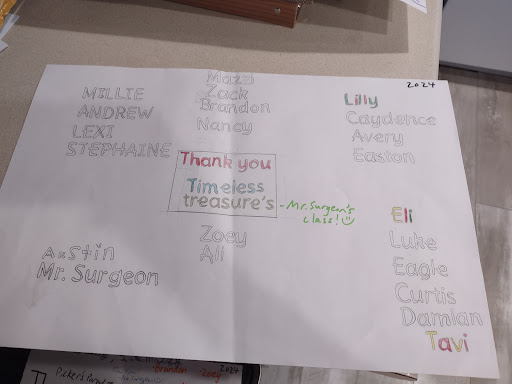 2024
MILLIE
ANDREW
LEXI
STEPHAINE
Mazzi
Zack
Brandon
Nancy
Lilly
Caydence
Avery
Easton
Thank you
Timeless
treasure's
-Mr. Surgeon's
class!
Zoey
Ali
Austin
Mr. Surgeon
Eli
Luke
Eagle
Curtis
Damian
Tavi
2024
brandon zoey